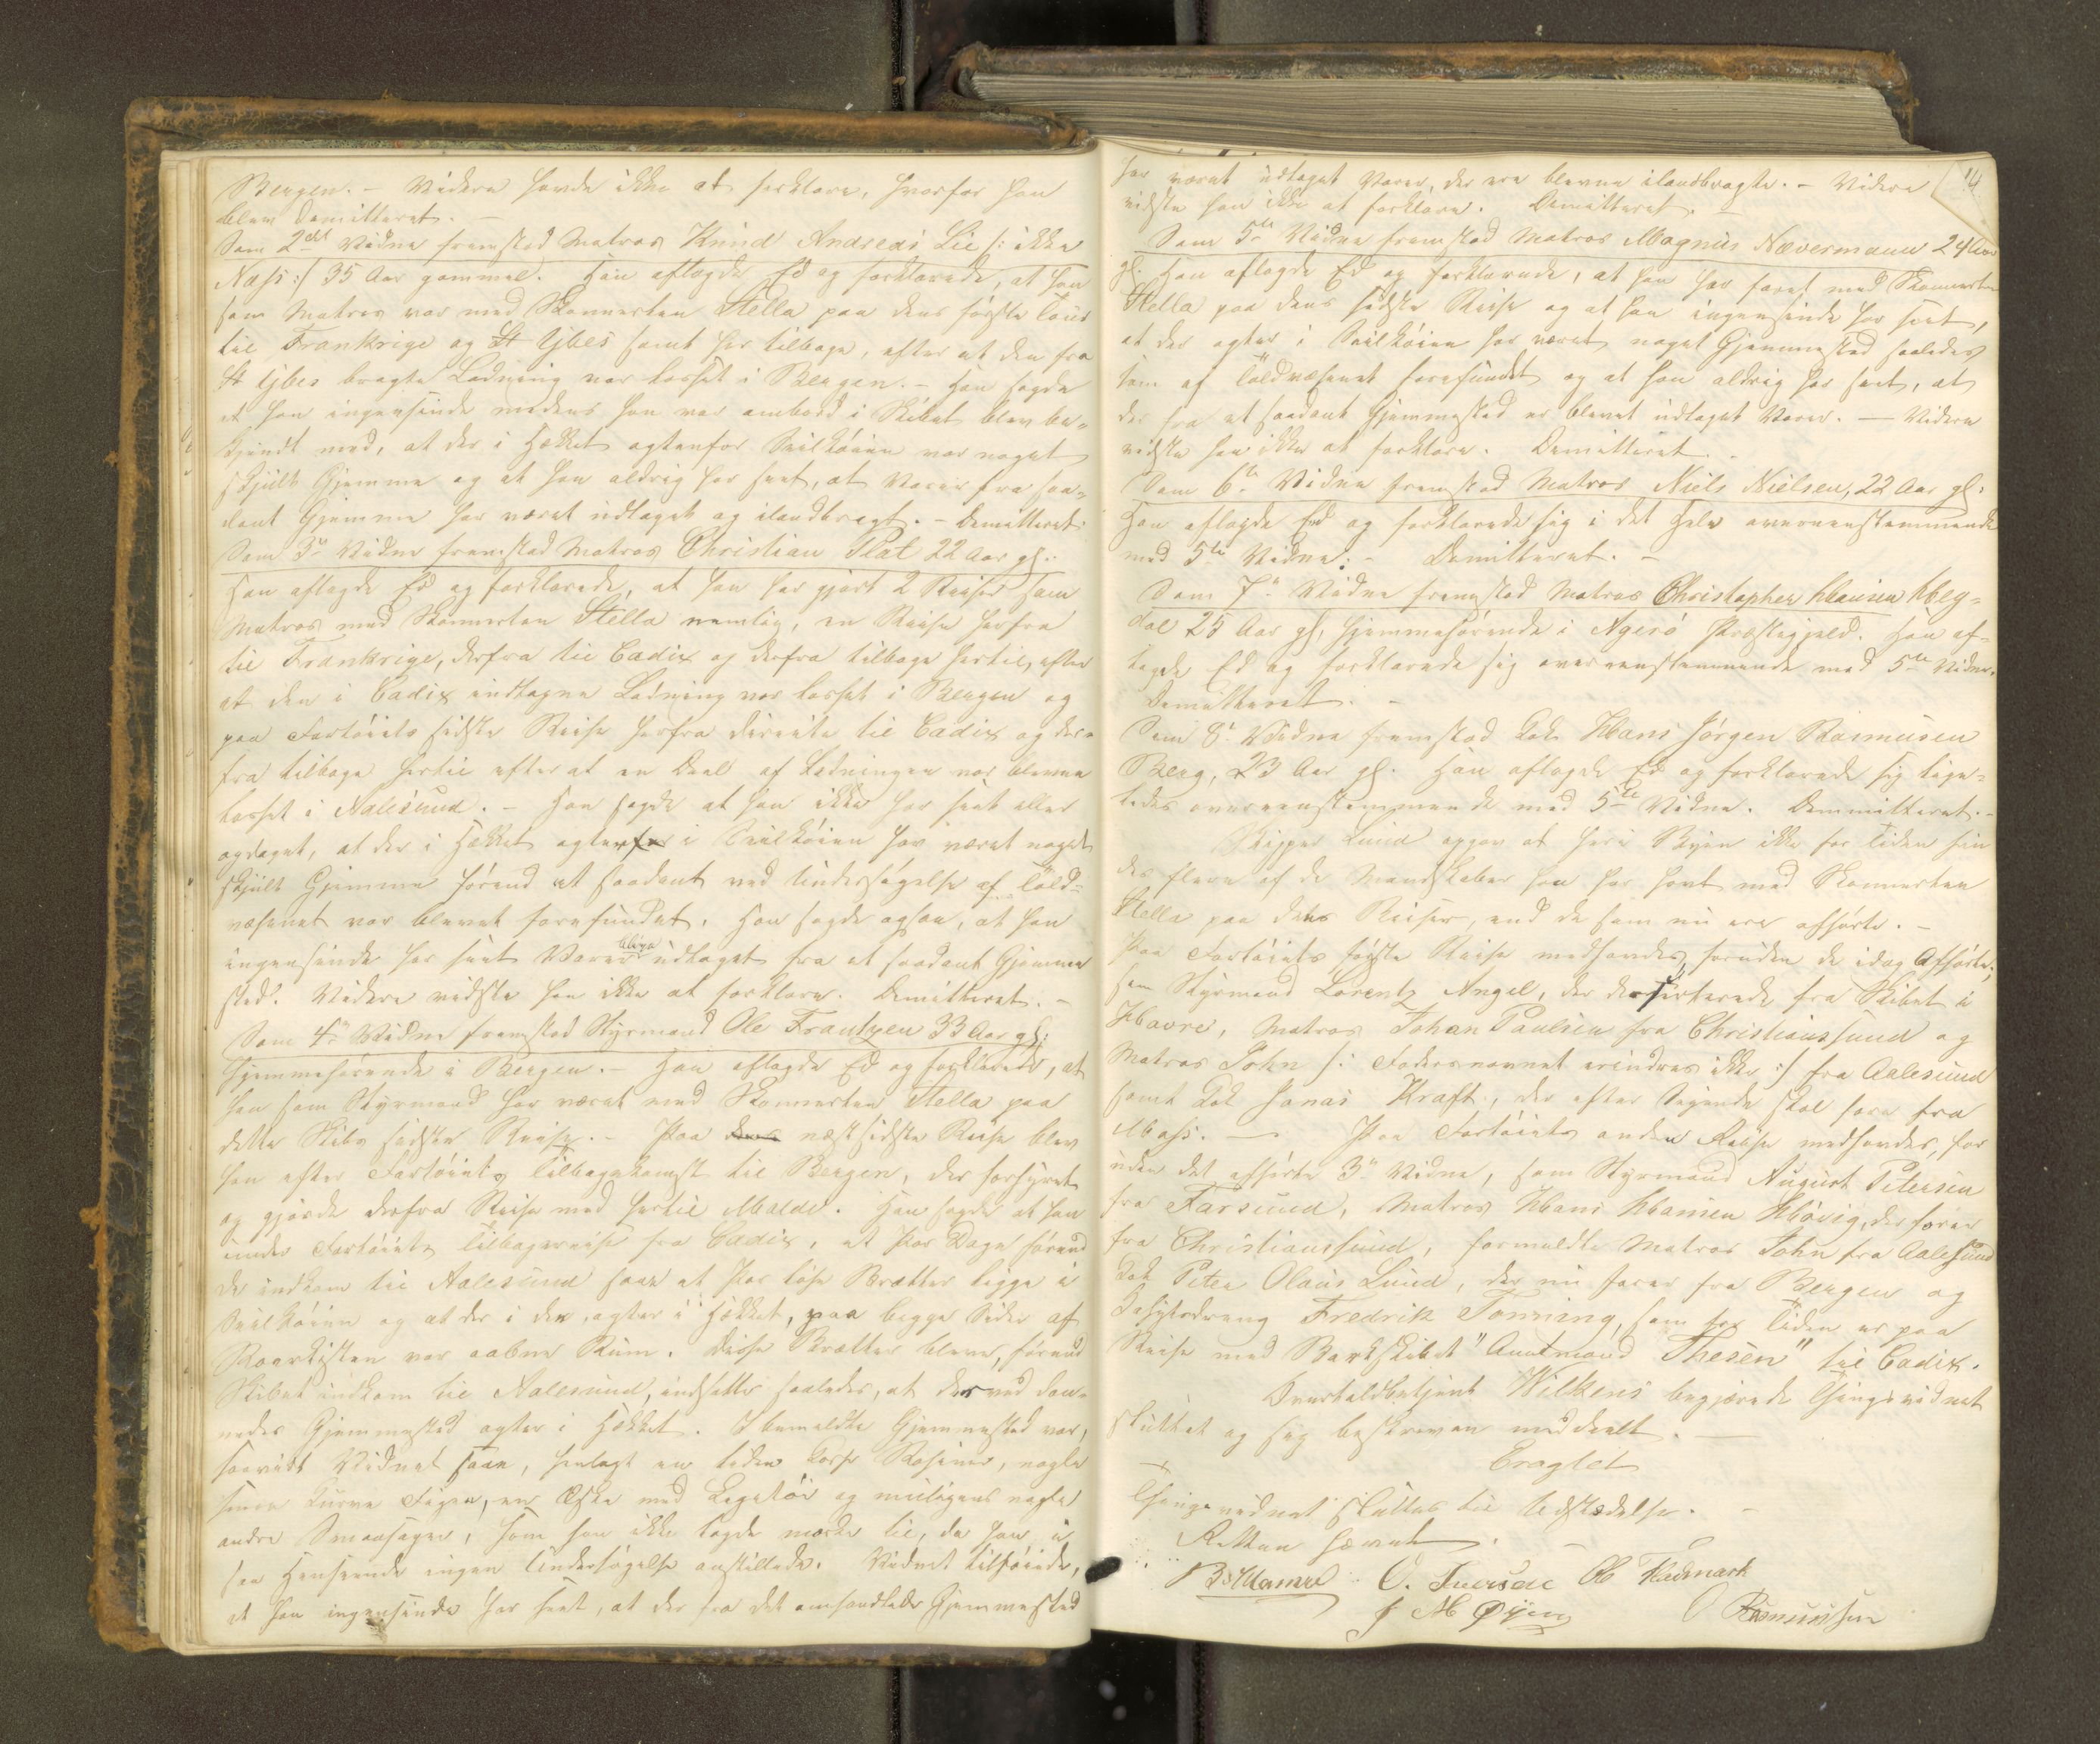 Bergen. – Videre havde ikke at forklare, hvorfor han
blev Demitteret. –
Som 2det Vidne fremstod Matros Knud Andreas Lie /: ikke
Næss :/ 35 Aar gammel. Han aflagde Ed og forklarede, at han
som Matros var med Skonnerten Stella paa dens første Tour
til Frankrige og St Ybes samt her tilbage, efter at den fra
St Ybes bragte Ladning var losset i Bergen. – Han sagde
at han ingensinde medens han var ombord i Skibet blev be-
kjendt med, at der i Hækket agtenfor Seilkøien var noget
skjult Gjemme og at han aldrig har seet, at Varer fra saa-
dant Gjemme har været udtaget og ilandbragt. – Demitteret.
Som 3die Vidne fremstod Matros Christian Plat 22 Aar gl:
Han aflagde Ed og forklarede, at han har gjort 2 Reiser som
Matros med Skonnerten Stella nemlig, en Reise herfra
til Frankrige, derfra til Cadix og derfra tilbage hertil, efter
at den i Cadix indtagne Ladning var losset i Bergen og
paa Fartøiets sidste Reise herfra directe til Cadix og der-
fra tilbage hertil efter at en Deel af Ladningen var bleven
losset i Aalesund. – Han sagde at han ikke har seet eller
opdaget, at der i Hækket agtenfor i Seilkøien har været noget
skjult Gjemme førend at saadant ved Undersøgelse af Told-
væsenet var blevet forefundet. Han sagde ogsaa, at han
ingensinde har seet Varer blive udtaget fra et saadant Gjemme
sted. Videre vidste han ikke at forklare. Demitteret. –
Som 4de Vidne fremstod Styrmand Ole Frantzen 33 Aar gl:
hjemmehørende i Bergen. – Han aflagde Ed og forklarede, at
han som Styrmand har været med Skonnerten Stella paa
dette Skibs sidste Reise. – Paa dens næstsidste Reise blev
han efter Fartøiets Tilbagekomst til Bergen, der forhyret
og gjorde derfra Reise med hertil Molde. Han sagde at han
under Fartøiets Tilbagereise fra Cadix, et Par Dage førend
de indkom til Aalesund saae et Par løse Brætter ligge i
Seilkøien og at der i den, agter i Hækket, paa begge Sider af
Roerkisten var aabne Rum. Disse Brætter bleve, førend
Skibet indkom til Aalesund, indsatte saaledes, at derved dan-
nedes Gjemmested agter i Hækket. I bemeldte Gjemmested var,
saavidt Vidnet saae, henlagt en liden Kasse Rosiner, nogle
smaa Kurve Figen, en Æske med Legetøi og muligens nogle
andre Smaasager, som han ikke lagde mærke til, da han i
saa Henseende ingen Undersøgelse anstillede. Vidnet tilføiede,
at han ingensinde har seet, at der fra det omhandlede Gjemmested
14
har været udtaget Varer, der ere blevne ilandbragte. – Videre
vidste han ikke at forklare. Demitteret. –
Som 5te Vidne fremstod Matros Magnus Nævermann 24 Aar
gl. Han aflagde Ed og forklarede, at han har faret med Skonnerten
Stella paa dens sidste Reise og at han ingensinde har seet,
at der agter i Seilkøien har været noget Gjemmested saaledes
som af Toldvæsenet forefundet og at han aldrig har seet, at
der fra et saadant Gjemmested er blevet udtaget Varer. – Videre
vidste han ikke at forklare. Demitteret. –
Som 6te Vidne fremstod Matros Niels Nielsen, 22 Aar gl:
Han aflagde Ed og forklarede sig i det Hele overeenstemmende
med 5te Vidne. – Demitteret. –
Som 7de Vidne fremstod Matros Christopher Hansen Hleg-
dal 25 Aar gl, hjemmehørende i Agerø Præstegjeld. Han af-
lagde Ed og forklarede sig overeenstemmende med 5te Vidne.
Demitteret. –
Som 8de Vidne fremstod Kok Hans Jørgen Rasmusen
Berg, 23 Aar gl. Han aflagde Ed og forklarede sig lige-
ledes overeenstemmende med 5te Vidne. Demmitteret. –
Skipper Lund opgav at her i Byen ikke for Tiden fin
des flere af de Mandskaber han har havt med Skonnerten
Stella paa dens Reiser, end de som nu ere afhørte. –
Paa Fartøiets første Reise medhavdes, foruden de idag Afhørte,
som Styrmand Lorentz Angel, der desserterede fra Skibet i
Havre, Matros Johan Paulsen fra Christianssund og
Matros John /: Fadersnavnet erindres ikke :/ fra Aalesund
samt Kok Jonas Kraft, der efter Sigende skal fare fra
Moss. – Paa Fartøiets anden Reise medhavdes, for
uden det afhørte 3die Vidne, som Styrmand August Petersen
fra Farsund, Matros Hans Hansen Høvig, der farer
fra Christianssund, formeldte Matros John fra Aalesund
Kok Peter Olaus Lund, der nu farer fra Bergen og
Kahytsdreng Fredrik Tønning, som for Tiden er paa
Reise med Barkskibet "Amtmand Thesen" til Cadix.
Overtoldbetjent Wilkens begjærede Thingsvidnet
sluttet og sig beskreven meddeelt. –
Eragtet
Thingsvidnet sluttes til Udstedelse. –
Retten hævet.
O. Iversen Ole Hedmark
J M Øyen O Rasmussen